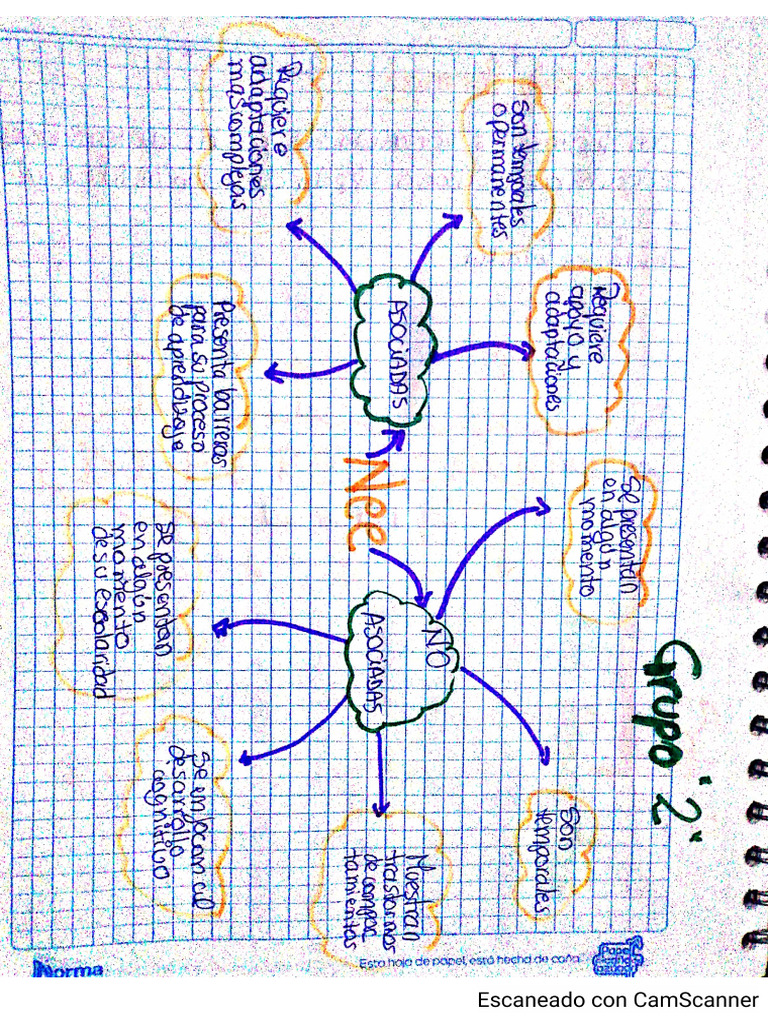 Grupo "2"
Nee
ASOCIADAS
Son temporales
o permanentes
Requiere
apoyo y
adaptaciones
Requiere
adaptaciones
mas complejas
Presenta barreras
para su proceso
de aprendizaje
NO
ASOCIADAS
Se presentan
en algún
momento
Son
temporales
Muestran
trastornos
de compor
tamientos
Se enfocan al
desarrollo
cognitivo
Se presentan
en algún
momento
de su escolaridad
Norma
Esta hoja de papel, está hecha de caña
Escaneado con CamScanner